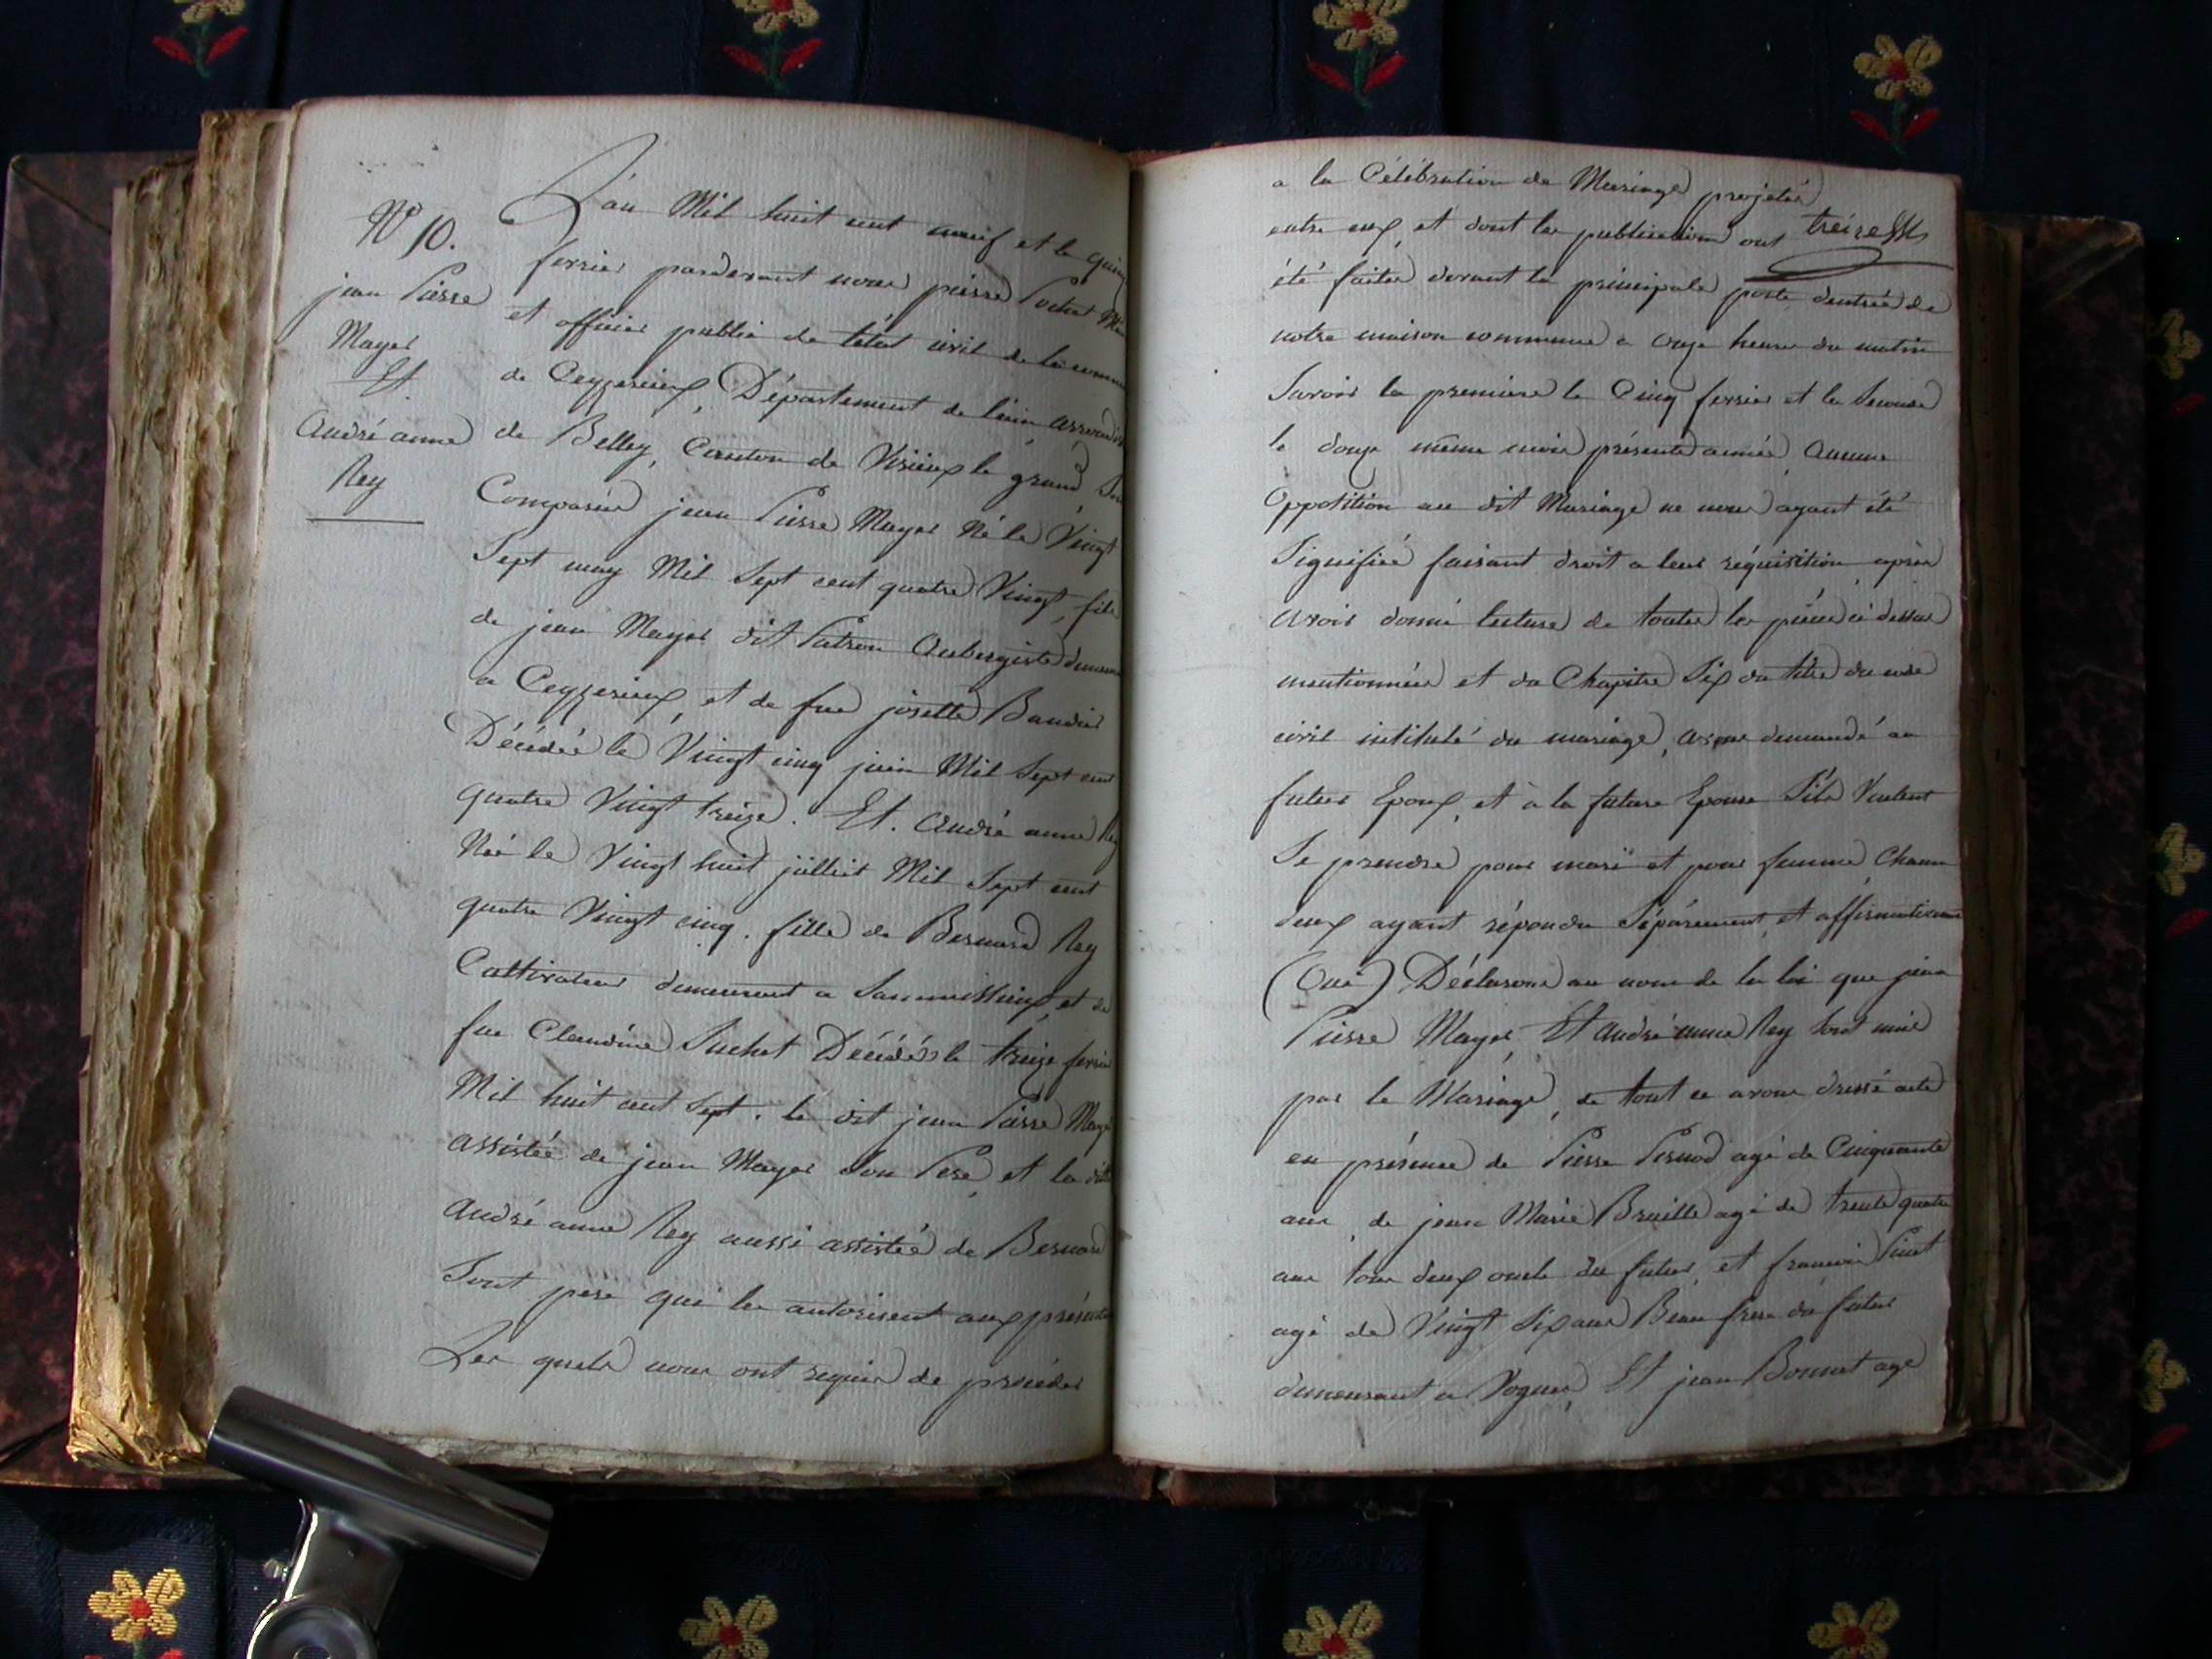 N° 10.
jean Pierre
Mayer
Et
André anne
Rey
L'an Mil huit cent neuf et le
fevrier pardevant nous pierre Pochet
et officier public de l'état civil de la
de Ceyzerieux, Département de l'ain
de Belley, Canton de Virieux le grand
Comparus jean Pierre Mayer Né le Vingt
Sept may Mil Sept cent quatre Vingt, fils
de jean Mayer dit Patron Aubergiste
a Ceyzerieux, et de fue josette Baudier
Décédée le Vingt cinq juin Mil Sept cent
quatre Vingt treize. Et. André anne Rey
Née le Vingt huit julliet Mil Sept cent
quatre Vingt cinq. fille de Bernard Rey
Cultivateur demeurant a et de
fue Claudine Suchet Décédés le treize
Mil huit cent Sept. le dit jean Pierre
assistée de jean Mayer Son Pere, et la
André anne Rey aussi assistée de Bernard
Sont pere qui les autorisent aux
Les quels nous ont requis de procéder
a la Célébration de Mariage projetés
entre eux, et dont les publications ont treize
été faites devant la principale porte d'entrée de
notre maison commune a onze heures du matin
Savoir la premiere le Cinq fevrier et la Seconde
le douze même mois présente année, Aucune
Opposition au dit Mariage ne nous ayant été
Signifiée faisant droit a leur réquisition, après
avoir donné lecture de toutes les pièces ci dessus
mentionnées et du Chapitre Six du titre du code
civil intitulé du mariage, avons demandé au
futur Epoux, et à la future Epouse S'ils Veulent
Se prendre pour mari et pour femme, Chacun
deux ayant répondu Séparement, et
(Oui) Déclarons au nom de la loi que jean
Pierre Mayer Et André anne Rey Sont unis
par le Mariage, de tout ce avons dressé acte
en présence de Pierre Pernod agé de Cinquante
ans, de jean Marie Braille agé de trente quatre
ans tous deux oncle du futur, et francois Pinet
agé de Vingt Six ans Beau frere du futur
demeurant a Vognes, Et jean Bonnet age